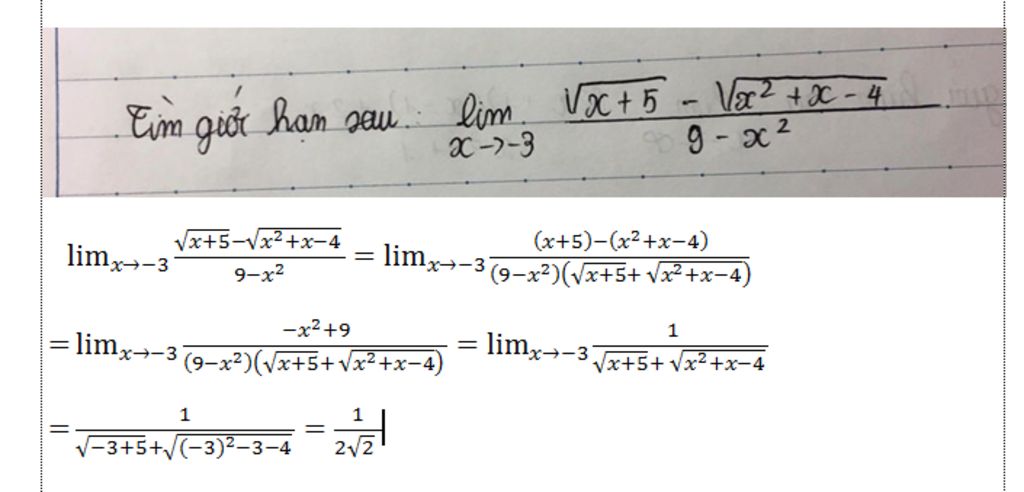 Tìm giới hạn sau: lim x→-3 (√(x+5) - √(x²+x-4))/(9-x²).
lim x→−3 (√(x+5)−√(x²+x−4))/(9−x²) = lim x→−3 ((x+5)−(x²+x−4))/((9−x²)(√(x+5)+ √(x²+x−4)))
= lim x→−3 (−x²+9)/((9−x²)(√(x+5)+√(x²+x−4))) = lim x→−3 1/(√(x+5)+ √(x²+x−4))
= 1/(√(−3+5)+√((−3)²−3−4)) = 1/(2√2)